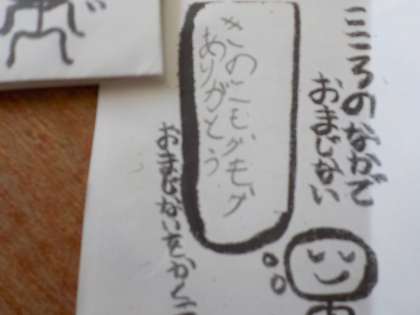 こころのなかで
おまじない
きのこモグモグ
ありがとう
おまじないをかく